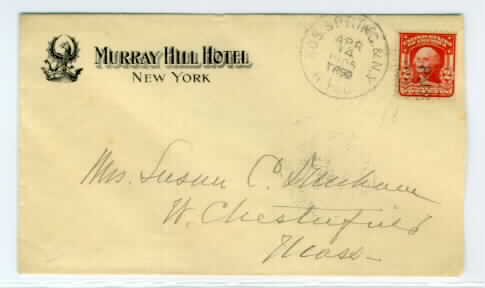 MURRAY HILL HOTEL
NEW YORK
BOS. SPRING. & N.Y.
APR
14
R.P.O.
Mrs. Susan C. Dunham
W. Chesterfield
Mass